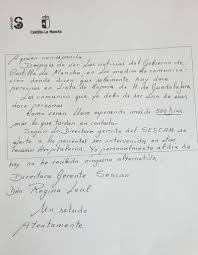 Castilla-La Mancha
A quien corresponda
Después de ver las noticias del Gobierno de
Castilla la Mancha, en los medios de comunica-
ción donde dicen que solamente hay doce
personas en Lista de Espera de H. de Guadalajara
Les comunico que yo debo de ser una de esas
doce personas
Como serán llevo esperando más de 500 Días
más lo que tarden en contestar
Según la Directora gerente del SESCAM se
oferta a los pacientes ser intervenidos en otros
Recursos Hospitalarios. Yo personalmente al día de
hoy no he recibido ninguna alternativa
Directora Gerente Sescam
Dña. Regina Leal
Un saludo
Atentamente